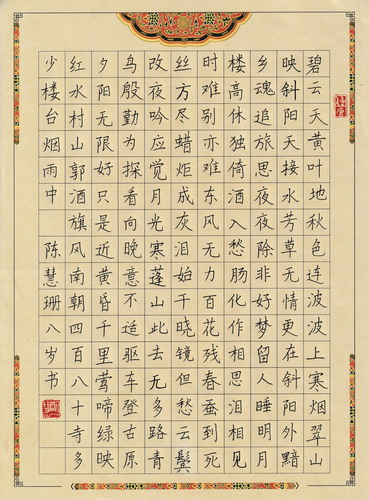 碧云天黄叶地秋色连波波上寒烟翠山
映斜阳天接水芳草无情更在斜阳外黯
乡魂追旅思夜夜除非好梦留人睡明月
楼高休独倚酒入愁肠化作相思泪相见
时难别亦难东风无力百花残春蚕到死
丝方尽蜡炬成灰泪始干晓镜但愁云鬓
改夜吟应觉月光寒蓬山此去无多路青
鸟殷勤为探看向晚意不适驱车登古原
夕阳无限好只是近黄昏千里莺啼绿映
红水村山郭酒旗风南朝四百八十寺多
少楼台烟雨中 陈慧珊八岁书